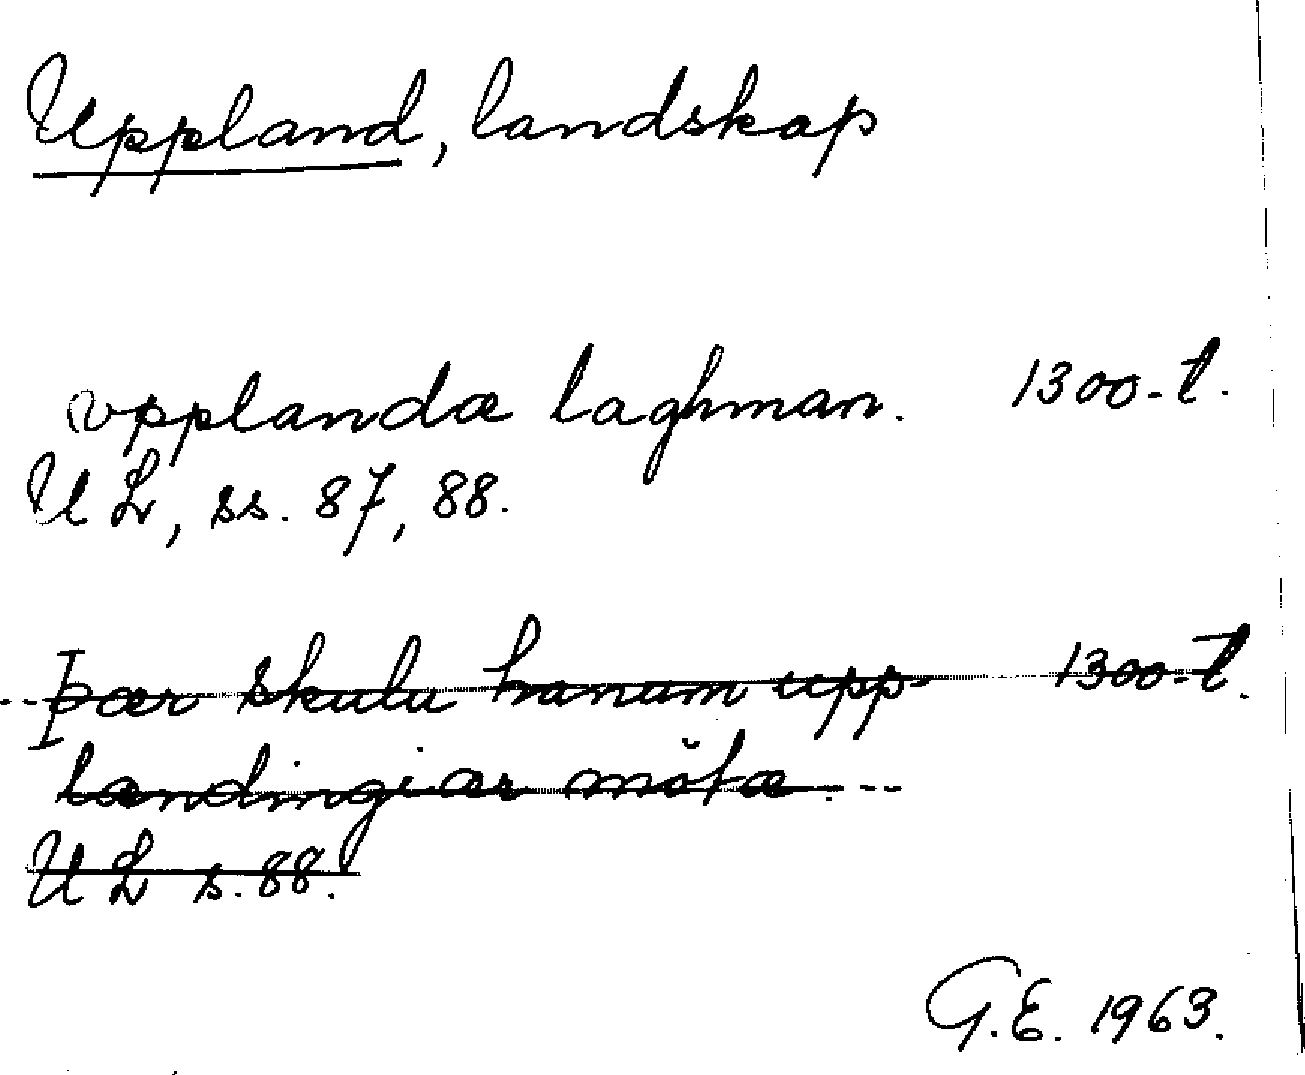 Uppland, landskap
vpplandæ laghman. 1300-t.
UL, ss. 87, 88.
Þær skulu hanum upp- 1300-t.
lændingiær mötæ.
UL s. 88.
G.E. 1963.